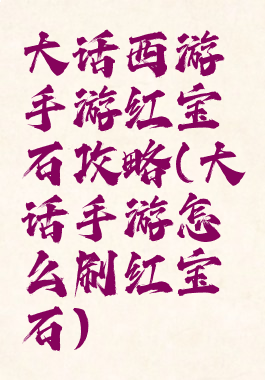 大话西游
手游红宝
石攻略(大
话手游怎
么刷红宝
石)